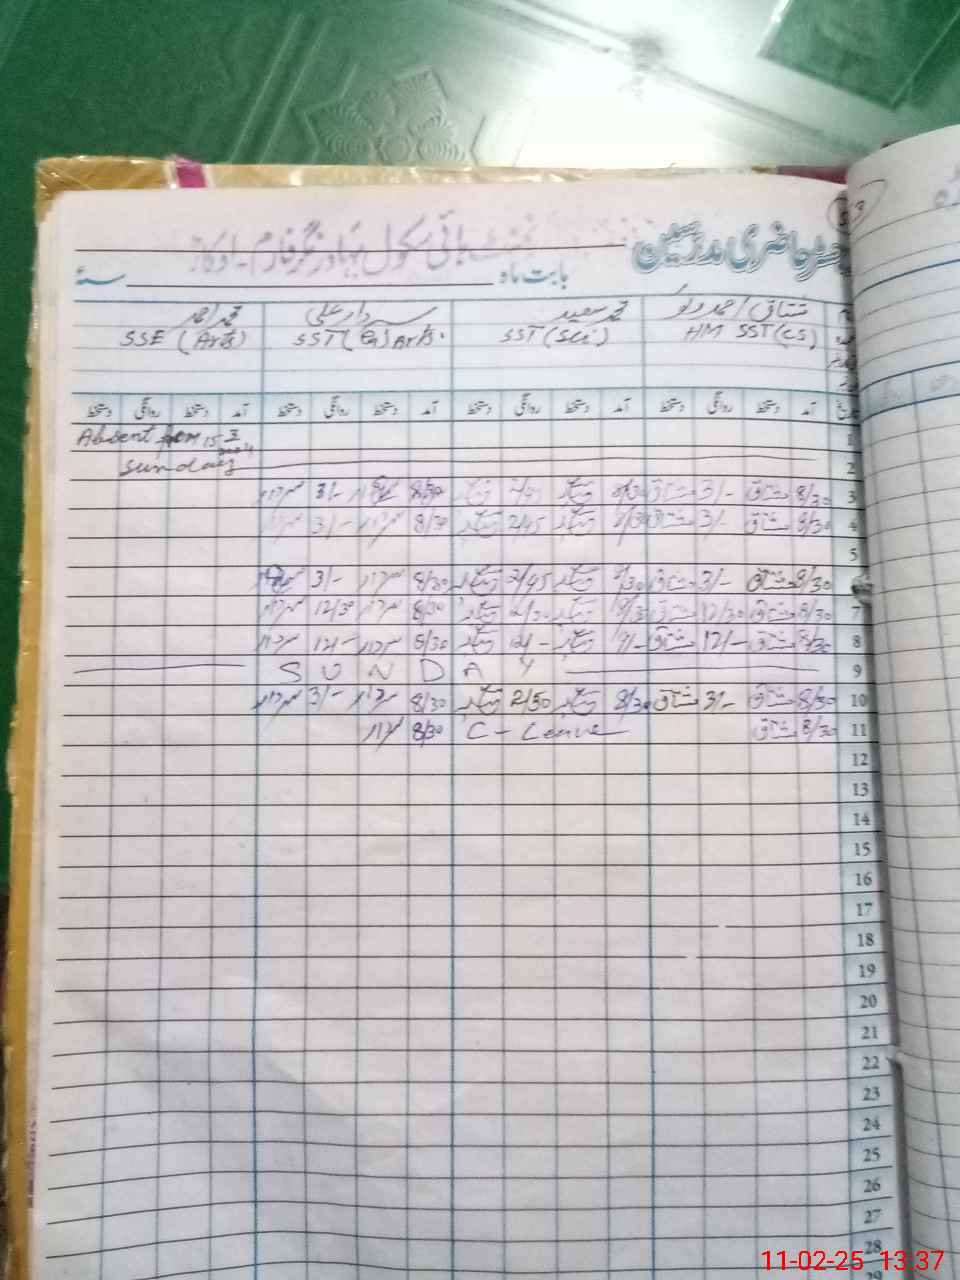 53
حاضری مدرسین
ہائی سکول بہادر نگر فارم ۔ اوکاڑہ
بابت ماہ سنہ
مشتاق احمد محمد سعید سردار علی محمد احمد
HM SST(CS) SST(Sci) SST( ) Arts. SSE (Arts)
آمد دستخط روانگی دستخط آمد دستخط روانگی دستخط آمد دستخط روانگی دستخط آمد دستخط روانگی دستخط
1 Absent from 15
2 Sunday
3 8/30 مشتاق 3/- مشتاق 8/30 سعید سعید 8/30 3/- سردار
4 8/30 مشتاق 3/- مشتاق سعید 2/45 سعید 8/30 سردار 3/- سردار
5
6 8/30 مشتاق 3/- مشتاق 8/30 سعید 2/45 سعید 8/30 سردار 3/-
7 8/30 مشتاق 12/30 مشتاق 8/30 سعید سعید 8/30 سردار 12/30 سردار
8 8/30 مشتاق 12/- مشتاق سعید 12/- سعید 8/30 سردار 12/- سردار
9 SUNDAY
10 8/30 مشتاق 3/- مشتاق 8/30 سعید 2/50 سعید 8/30 سردار 3/- سردار
11 8/30 مشتاق C-Leave 8/30 سردار
12
13
14
15
16
17
18
19
20
21
22
23
24
25
26
27
28
29
11-02-25 13.37